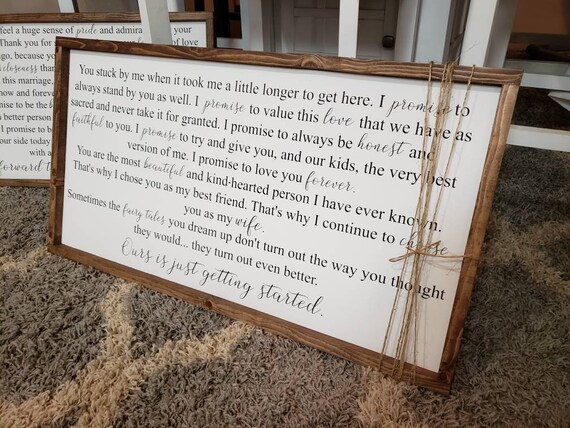 feel a huge sense of pride and admira
your
Thank you for
of love
ago, because yo
closeness than
this marriage.
now and forever
mise to be the b
n better person
I promise to be
our side today
with a
forward t
You stuck by me when it took me a little longer to get here. I promise to
always stand by you as well. I promise to value this love that we have as
sacred and never take it for granted. I promise to always be honest and
faithful to you. I promise to try and give you, and our kids, the very best
version of me. I promise to love you forever.
You are the most beautiful and kind-hearted person I have ever known.
That's why I chose you as my best friend. That's why I continue to choose
you as my wife.
Sometimes the fairy tales you dream up don't turn out the way you thought
they would... they turn out even better.
Ours is just getting started.